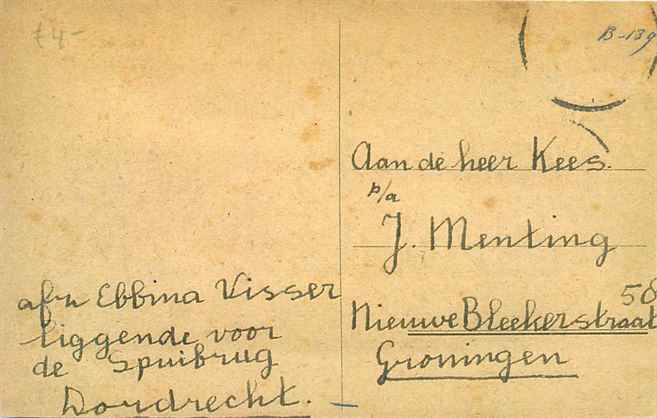 £4-
B-139
Aan de heer Kees.
p/a
J. Menting
58
Nieuwe Bleekerstraat
Groningen
afz Ebbina Visser
liggende voor
de Spuibrug
Dordrecht.